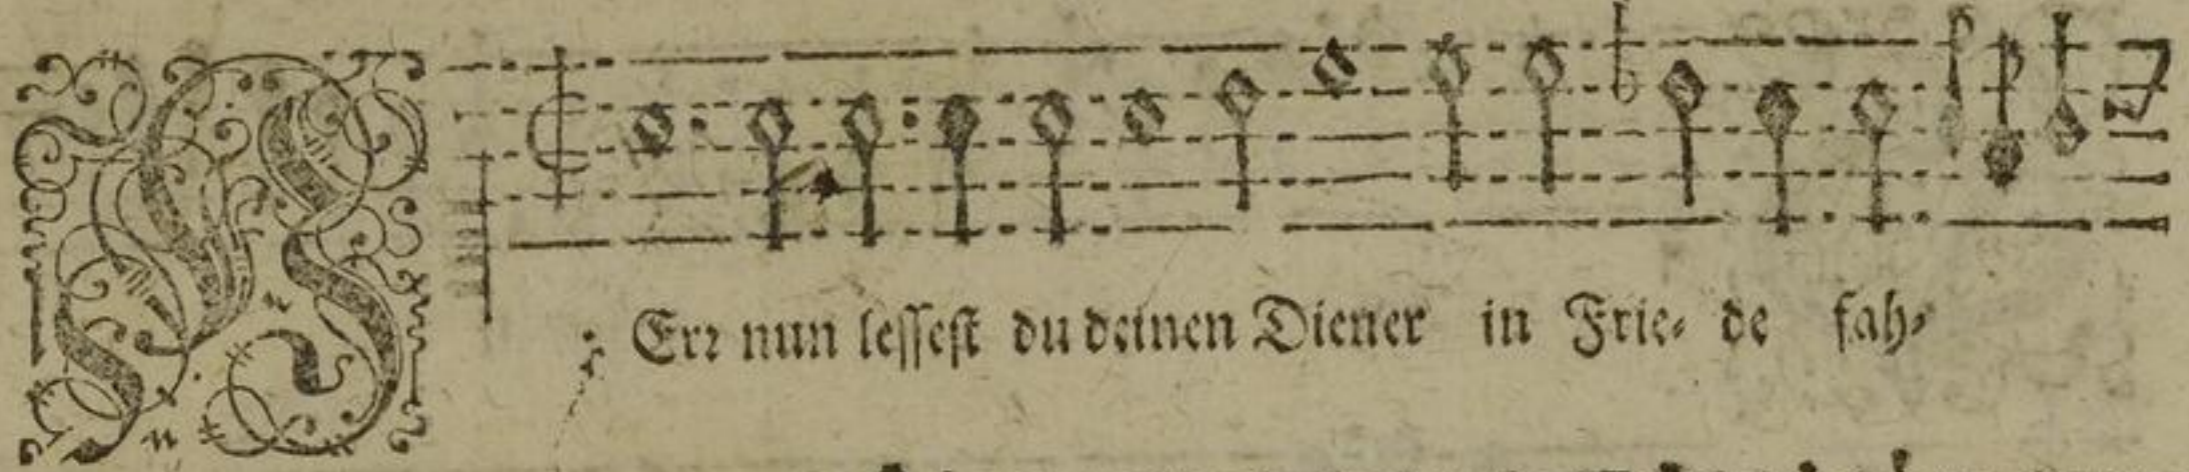 HErr nun lessest du deinen Diener in Frie- de fah-